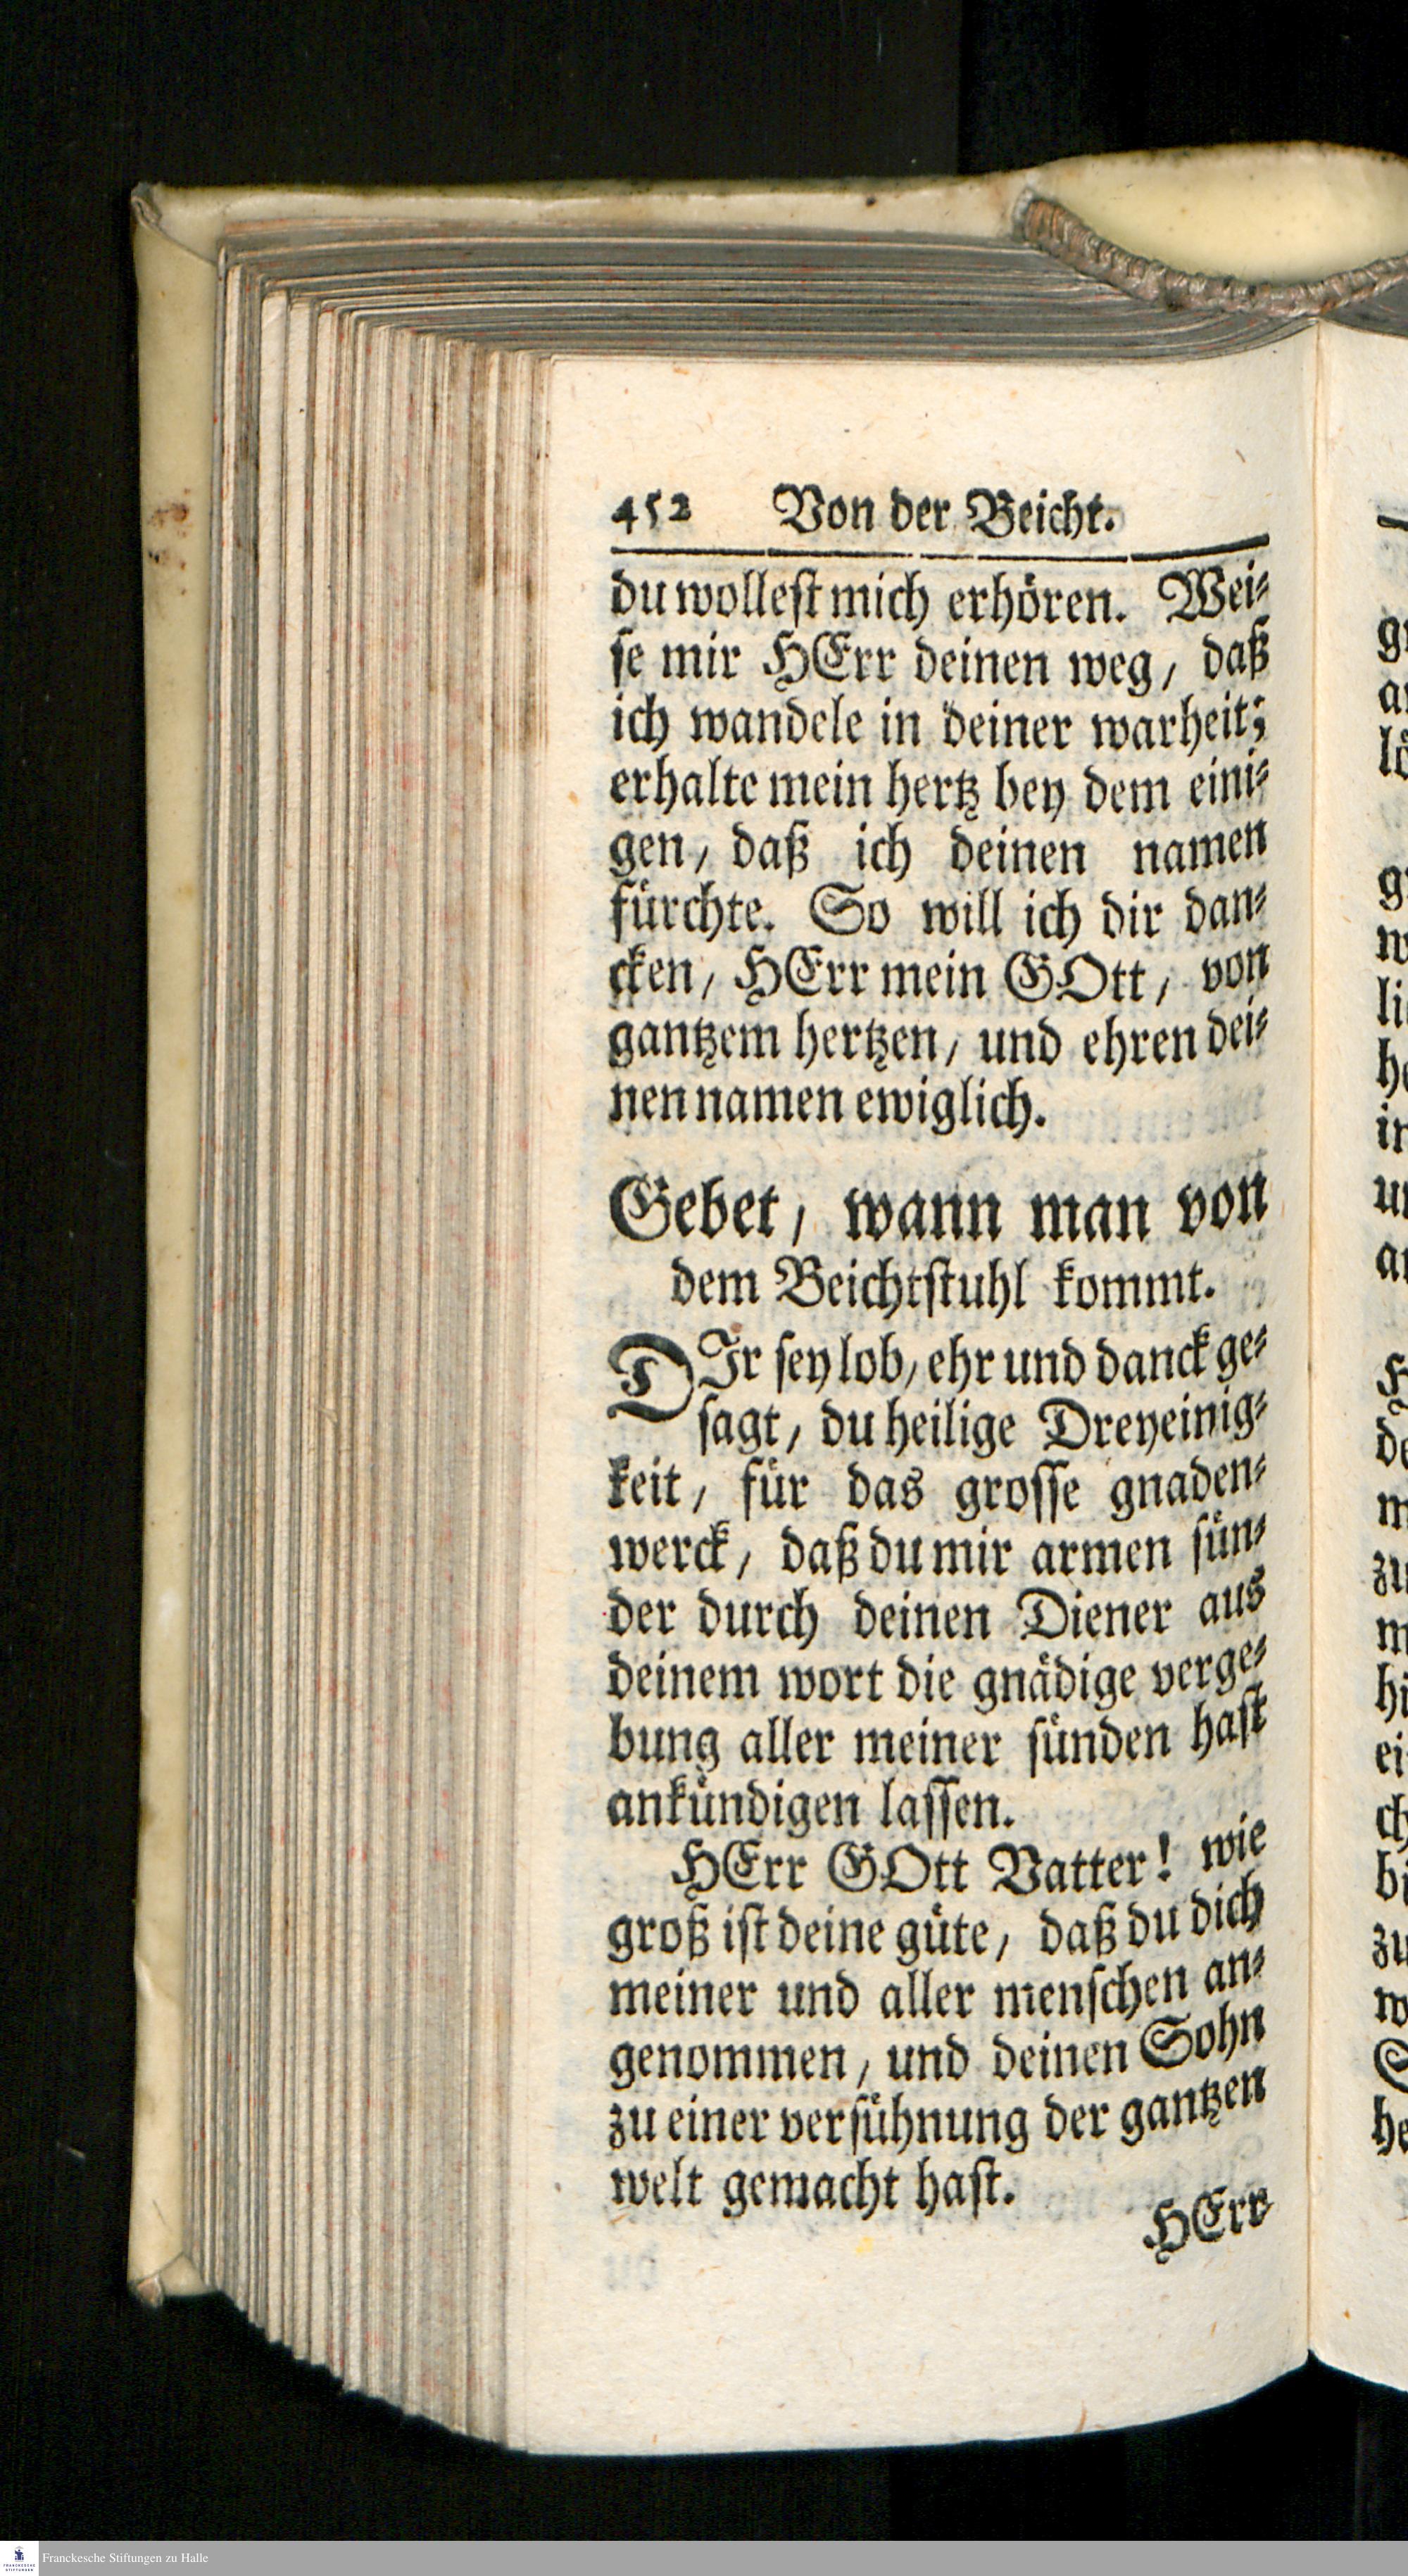 452 Von der Beicht.
du wollest mich erhören. Wei-
se mir HErr deinen weg, daß
ich wandele in deiner warheit;
erhalte mein hertz bey dem eini-
gen, daß ich deinen namen
fürchte. So will ich dir dan-
cken, HErr mein GOtt, von
gantzem hertzen, und ehren dei-
nen namen ewiglich.
Gebet, wann man von
dem Beichtstuhl kommt.
DIr sey lob, ehr und danck ge-
sagt, du heilige Dreyeinig-
keit, für das grosse gnaden-
werck, daß du mir armen sün-
der durch deinen Diener aus
deinem wort die gnädige verge-
bung aller meiner sünden hast
ankündigen lassen.
HErr GOtt Vatter! wie
groß ist deine güte, daß du dich
meiner und aller menschen an-
genommen, und deinen Sohn
zu einer versühnung der gantzen
welt gemacht hast.
HErr
Franckesche Stiftungen zu Halle